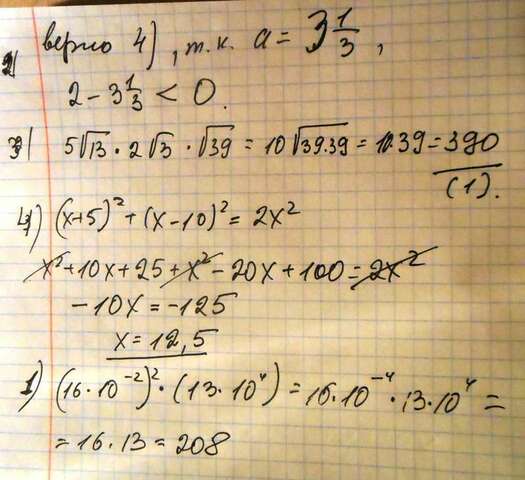 2) верно 4), т.к. a = 3 1/3,
2 - 3 1/3 < 0.
3) 5√13 · 2√3 · √39 = 10√39·39 = 10·39 = 390
(1).
4) (x+5)² + (x-10)² = 2x²
x² + 10x + 25 + x² - 20x + 100 = 2x²
-10x = -125
x = 12,5
1) (16·10⁻²)² · (13·10⁴) = 16·10⁻⁴ · 13·10⁴ =
= 16·13 = 208